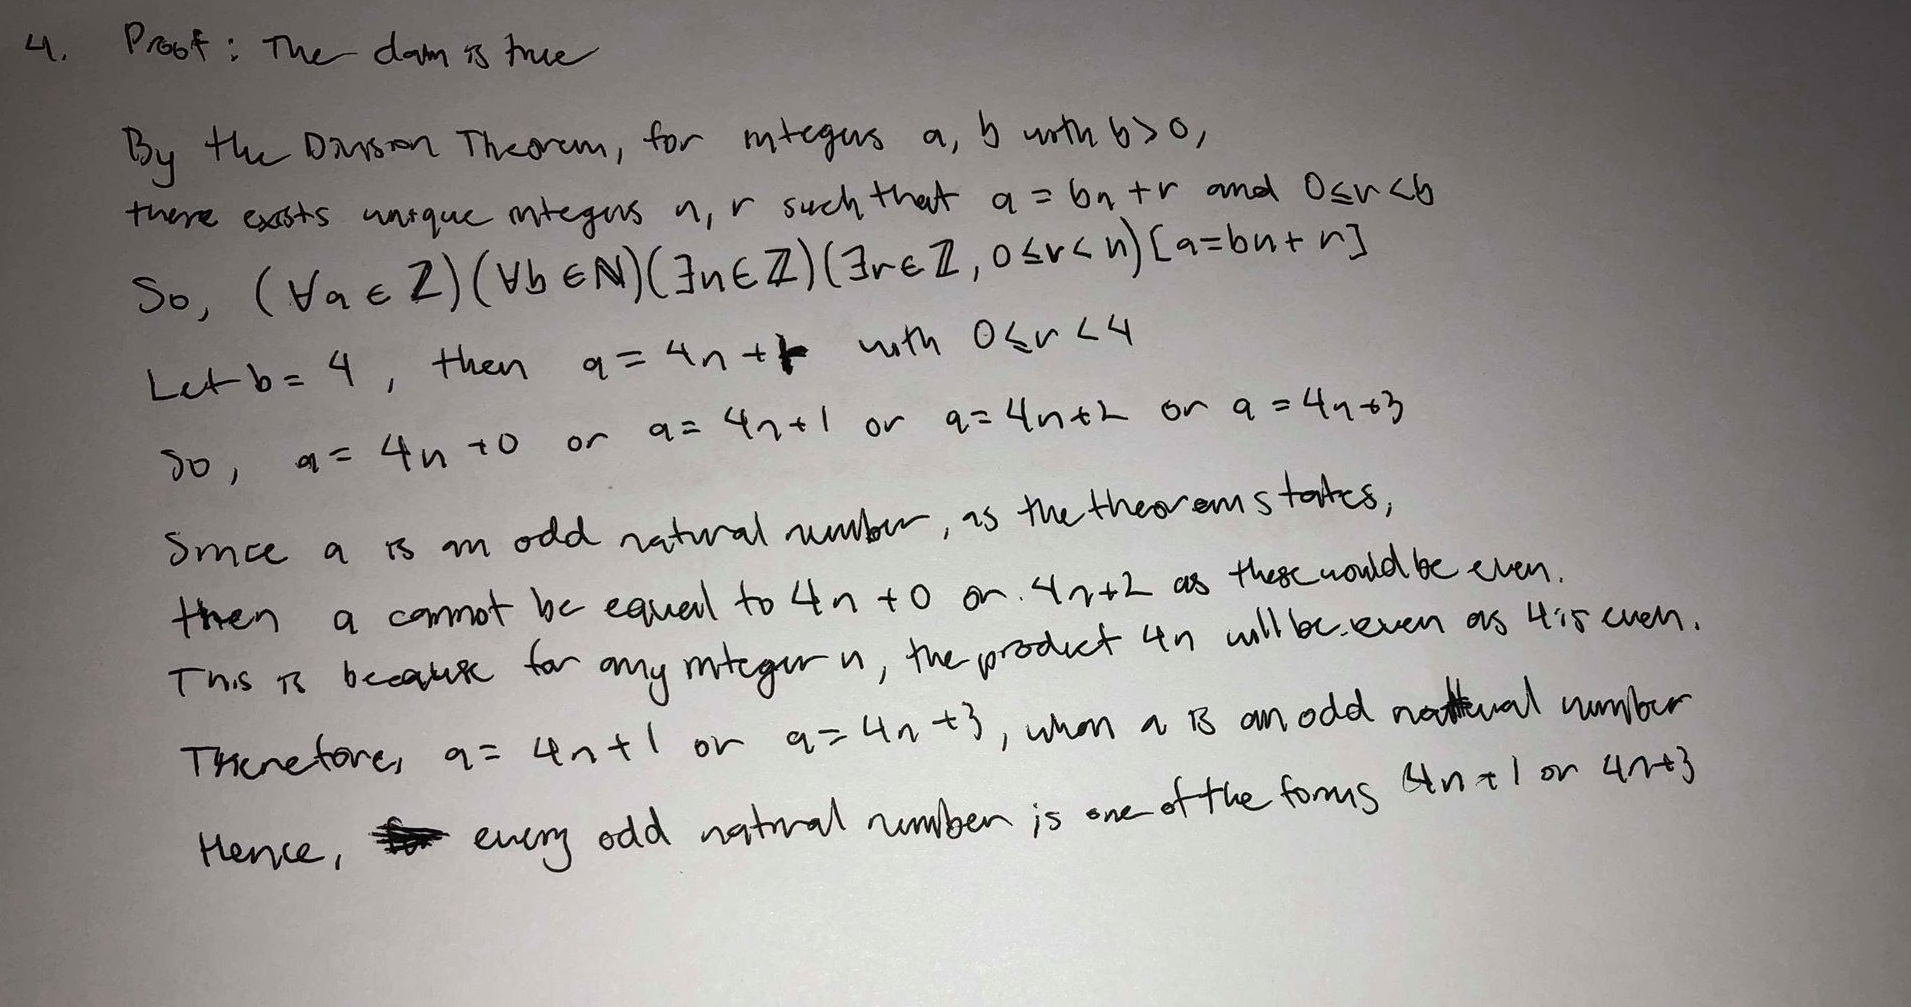 4. Proof: The claim is true
By the Division Theorem, for integers a, b with b>0,
there exists unique integers n, r such that a = bn + r and 0≤r<b
So, (∀a ∈ ℤ)(∀b ∈ ℕ)(∃n ∈ ℤ)(∃r ∈ ℤ, 0≤r<n)[a=bn+r]
Let b = 4, then a = 4n + r with 0≤r<4
So, a = 4n +0 or a = 4n+1 or a = 4n+2 or a = 4n+3
Since a is an odd natural number, as the theorem states,
then a cannot be equal to 4n +0 or 4n+2 as these would be even.
This is because for any integer n, the product 4n will be even as 4 is even.
Therefore, a = 4n+1 or a = 4n+3, when a is an odd natural number
Hence, every odd natural number is one of the forms 4n+1 or 4n+3